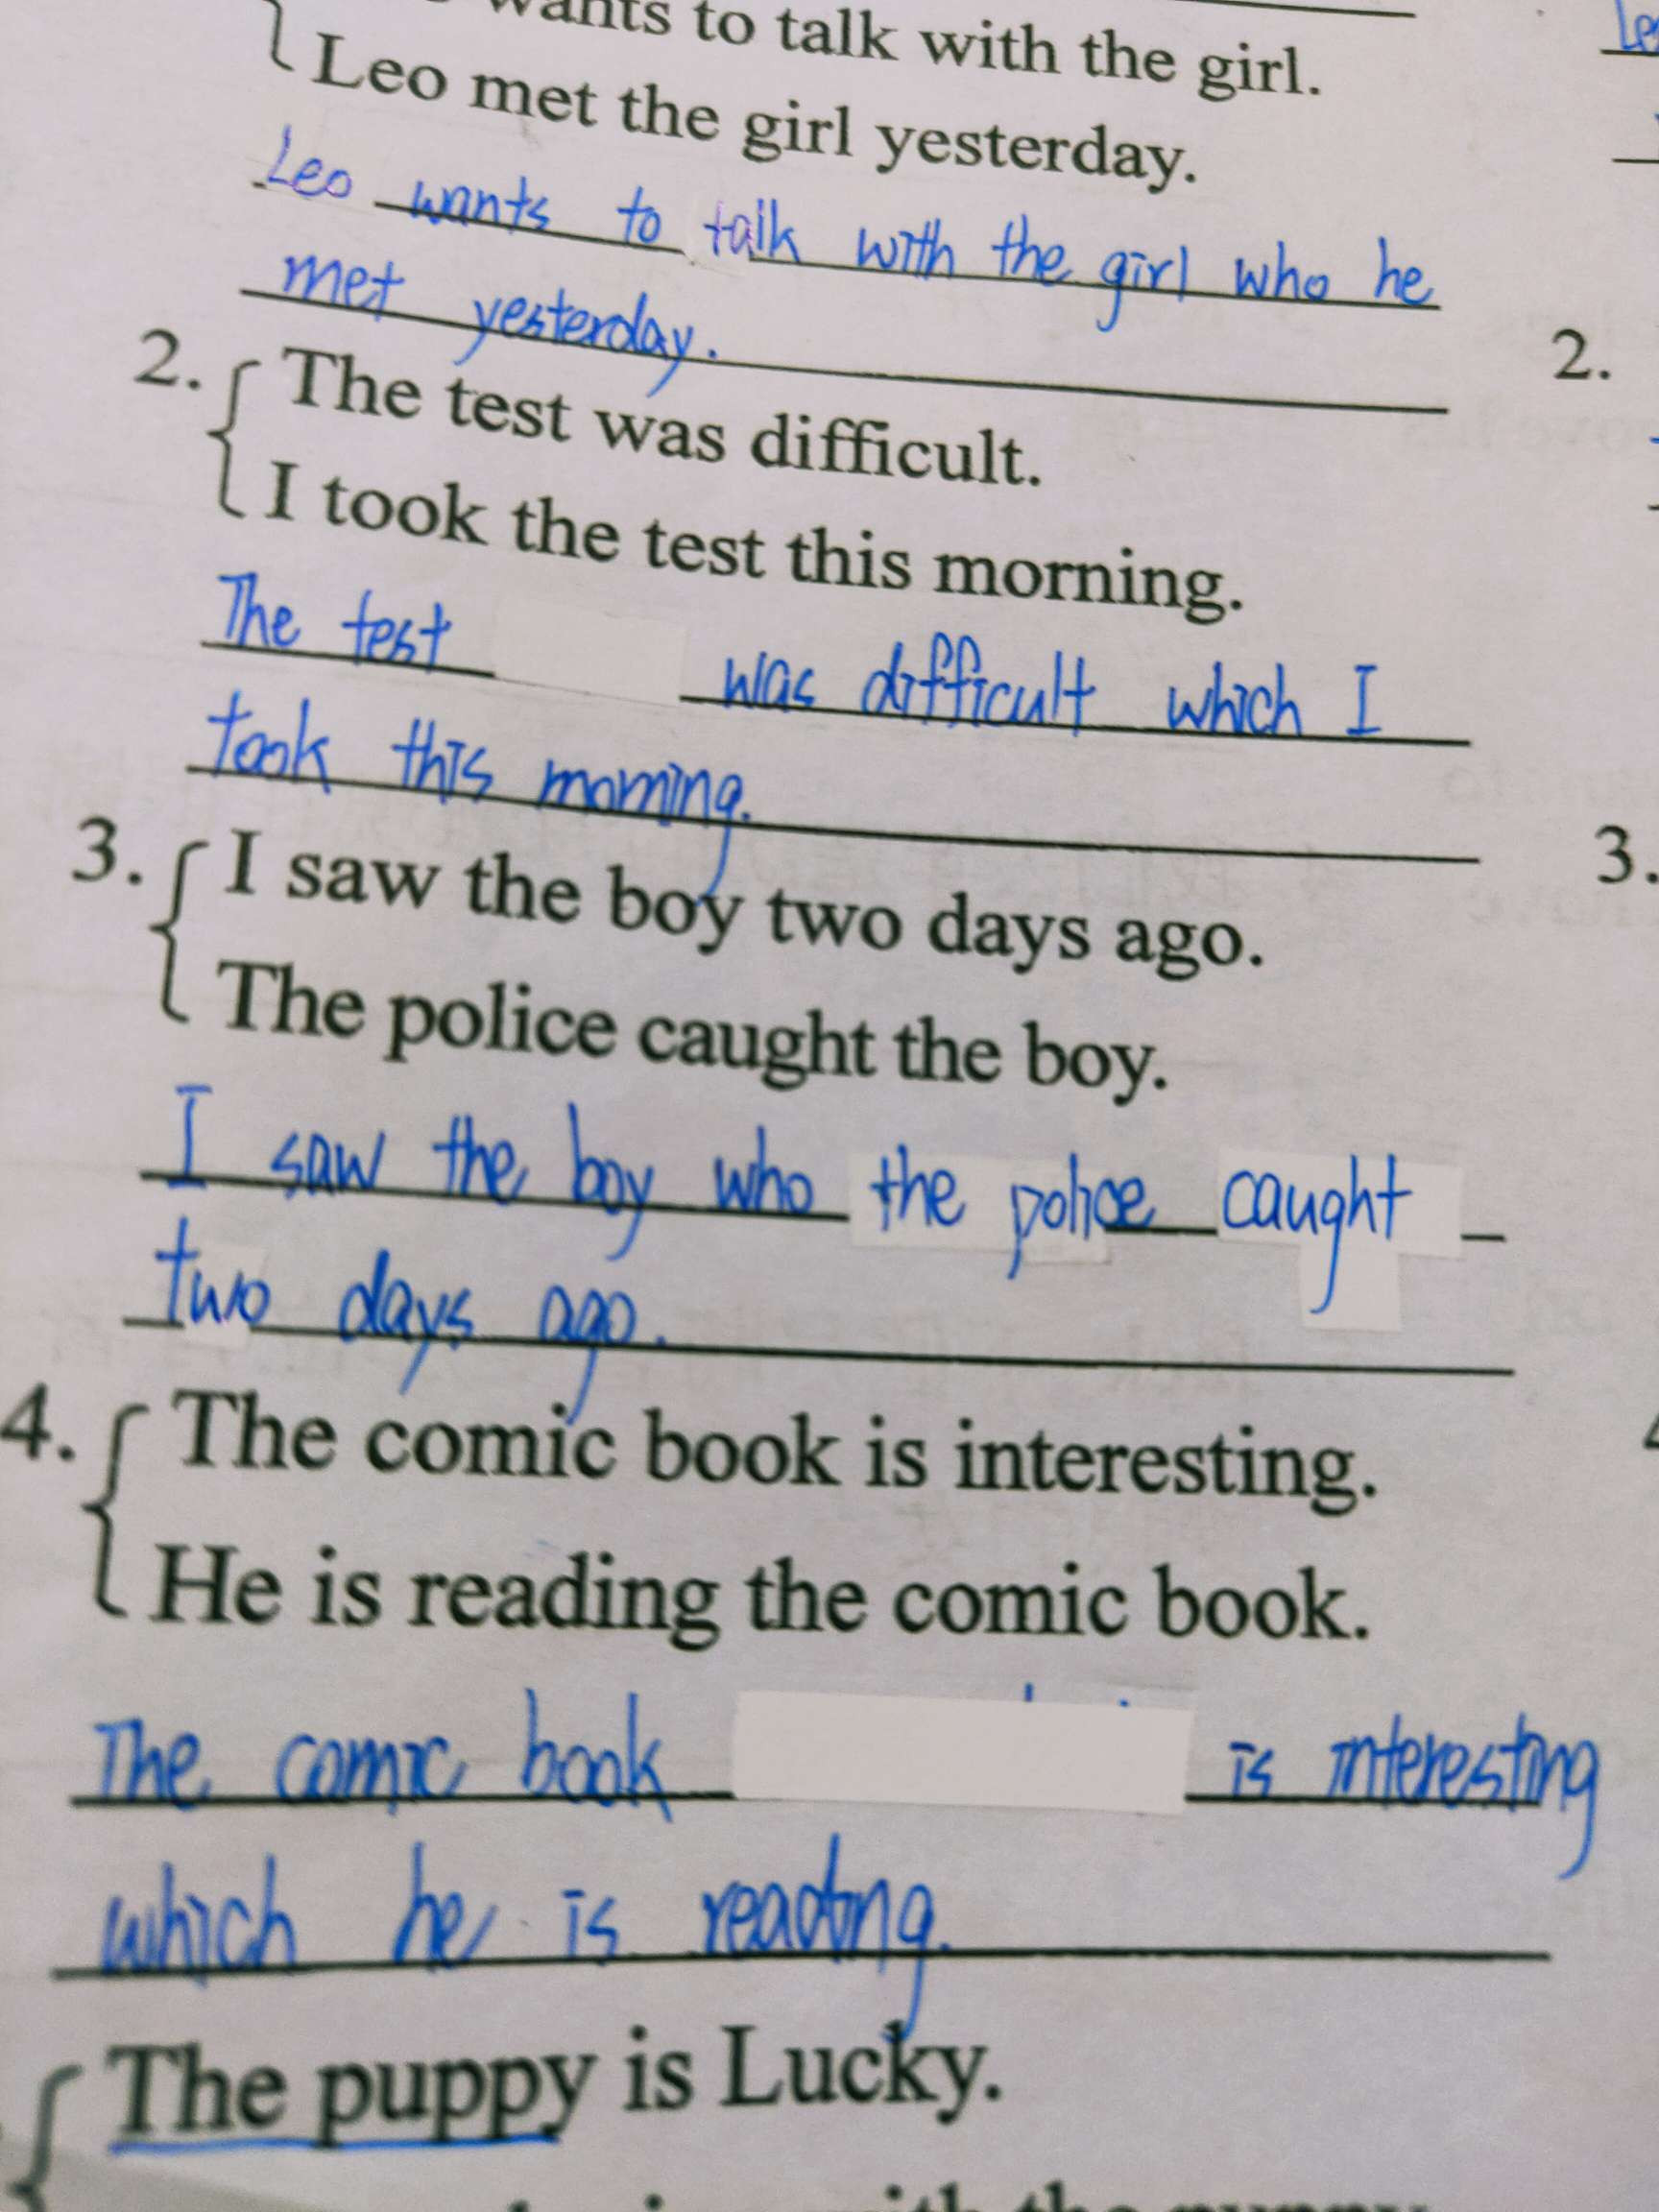 wants to talk with the girl.
Leo met the girl yesterday.
Leo wants to talk with the girl who he
met yesterday.
2. The test was difficult.
I took the test this morning.
The test was difficult which I
took this morning.
3. I saw the boy two days ago.
The police caught the boy.
I saw the boy who the police caught
two days ago.
4. The comic book is interesting.
He is reading the comic book.
The comic book is interesting
which he is reading.
The puppy is Lucky.
with the puppy
2.
3.